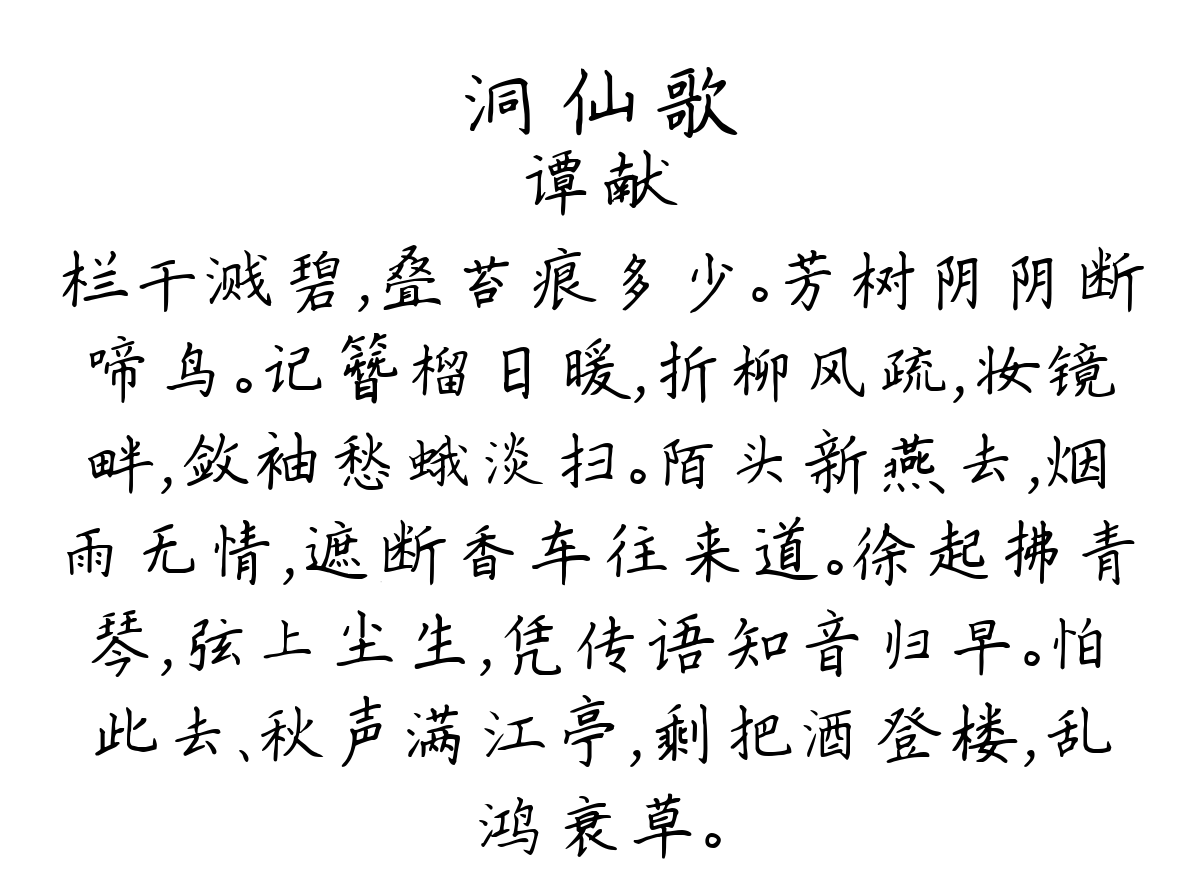 洞仙歌
谭献
栏干溅碧,叠苔痕多少。芳树阴阴断
啼鸟。记簪榴日暖,折柳风疏,妆镜
畔,敛袖愁蛾淡扫。陌头新燕去,烟
雨无情,遮断香车往来道。徐起拂青
琴,弦上尘生,凭传语知音归早。怕
此去、秋声满江亭,剩把酒登楼,乱
鸿衰草。